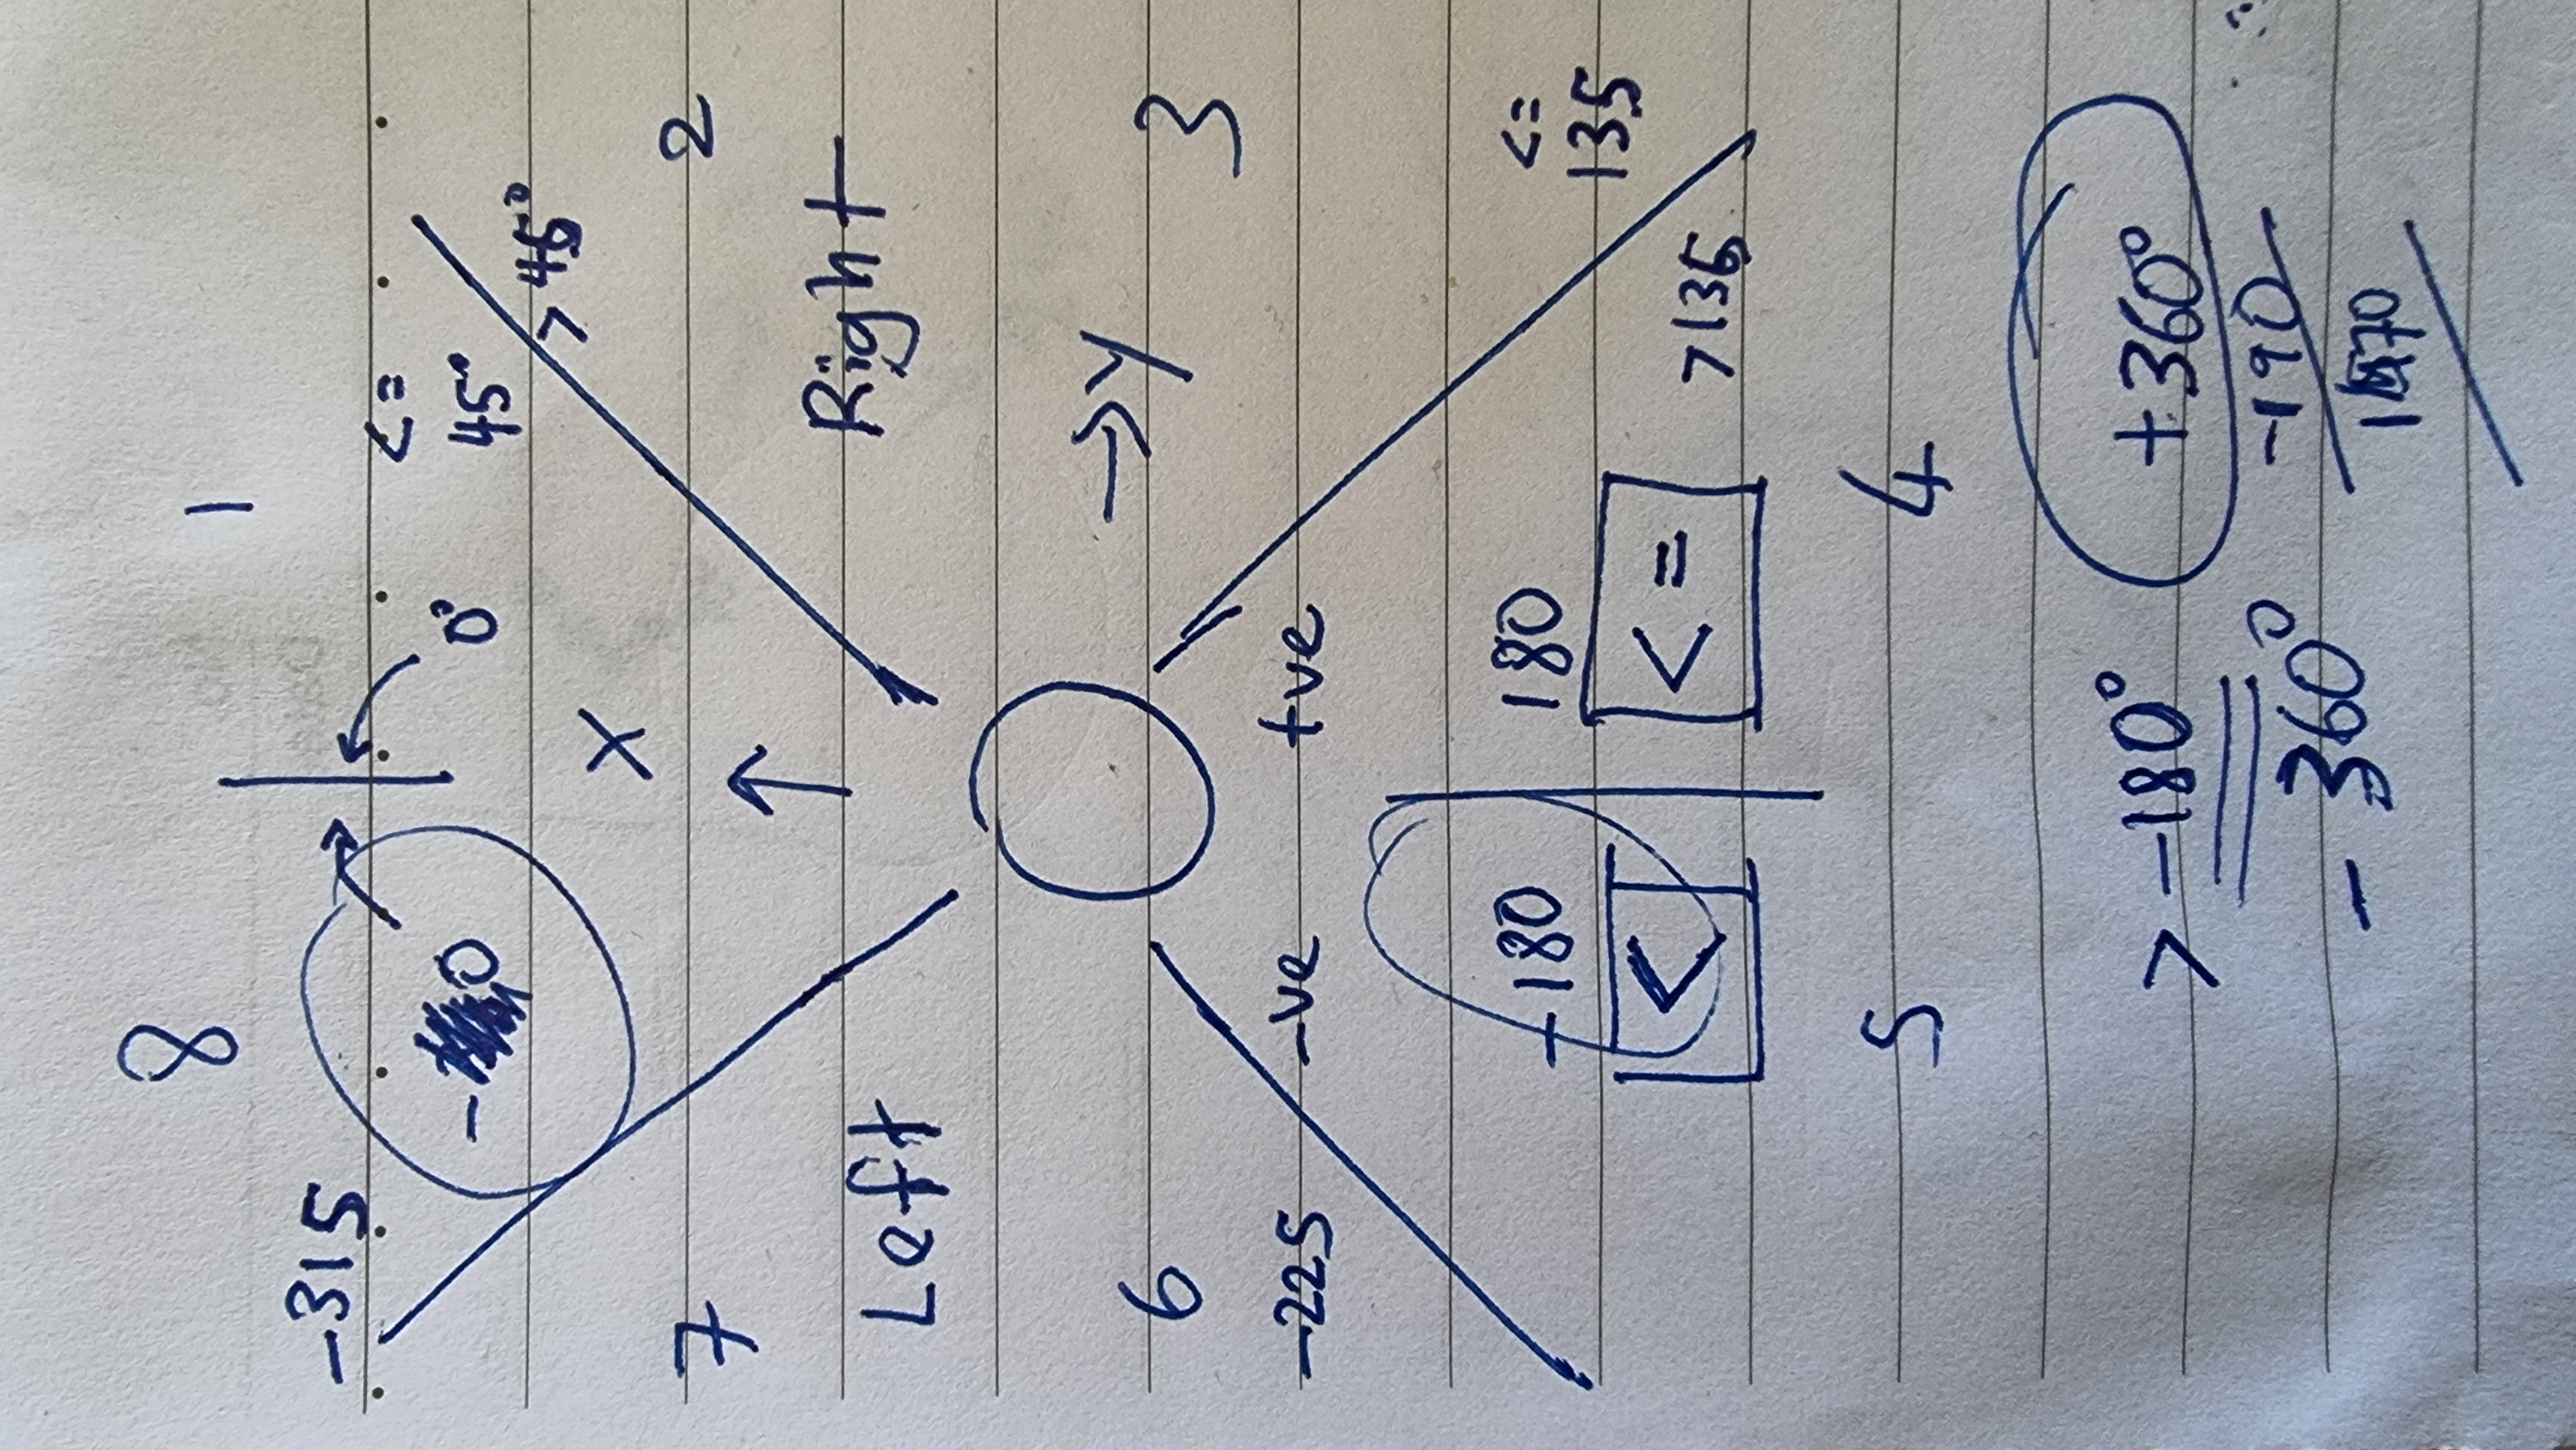 8 1
-315
<=
-0 0° 45°
> 45°
X
7 2
Left Right
→Y
6 3
-225 -ve +ve
-180 180 <=
135
< <=
>135
5 4
> -180° +360°
-360° -190
170